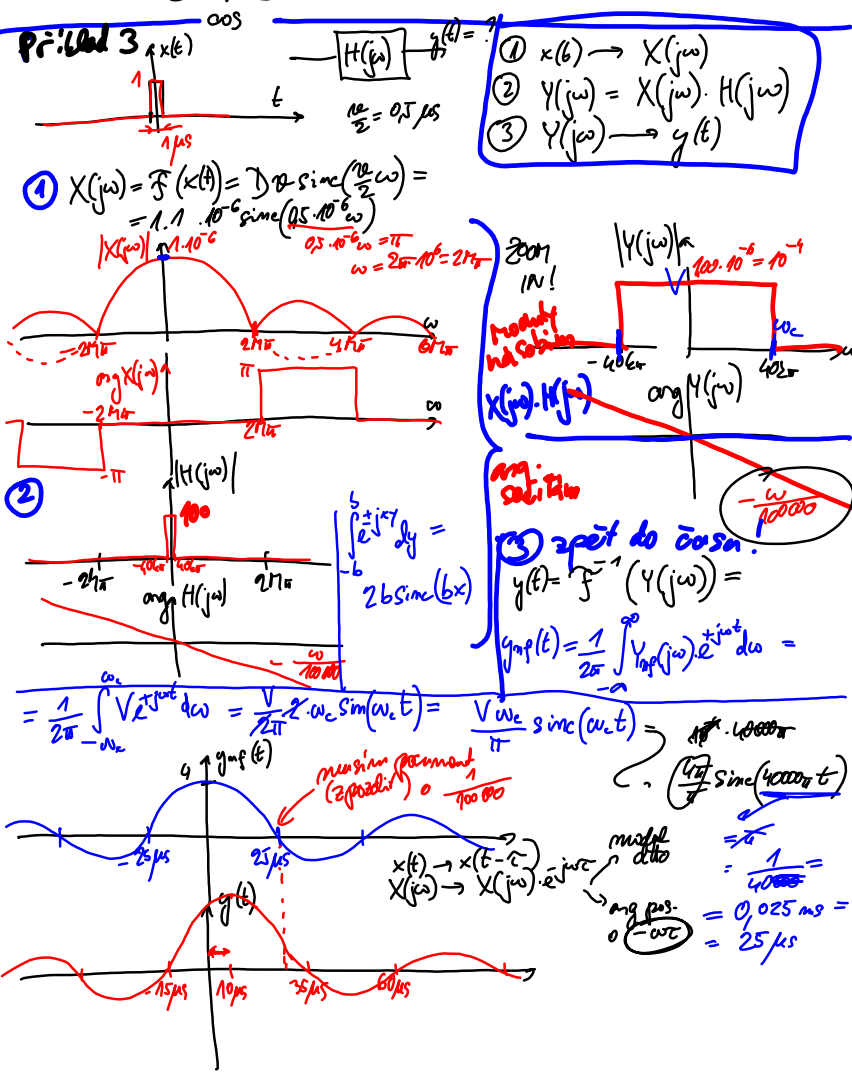 cos
Příklad 3
x(t)
1
t
1μs
H(jω)
y(t) = ?
ϑ/2 = 0,5 μs
① x(t) → X(jω)
② Y(jω) = X(jω) · H(jω)
③ Y(jω) → y(t)
① X(jω) = F(x(t)) = D ϑ sinc(ϑ/2 ω) =
= 1.1 · 10^-6 sinc(0,5·10^-6 ω)
0,5·10^-6 ω = π
ω = 2π·10^6 = 2Mπ
|X(jω)|
1·10^-6
ω
-2Mπ 2Mπ 4Mπ 6Mπ
arg X(jω)
π
-2Mπ 2Mπ
ω
-π
②
|H(jω)|
100
-2Mπ -40kπ 40kπ 2Mπ
arg H(jω)
- ω/100000
∫_{-b}^{b} e^{±jxy} dy =
2b sinc(bx)
ZOOM
IN!
|Y(jω)|
100·10^-6 = 10^-4
V
ω_c
-40kπ 40kπ
moduly
násobím
X(jω)·H(jω)
arg Y(jω)
arg.
sčítám
- ω/100000
③ zpět do času.
y(t) = F^-1 (Y(jω)) =
y_nf(t) = 1/2π ∫ Y_nf(jω)·e^{+jωt} dω =
= 1/2π ∫_{-ω_c}^{ω_c} V e^{+jωt} dω = V/2π 2·ω_c sinc(ω_c t) = Vω_c/π sinc(ω_c t) =
·40000π
4π/π sinc(40000π t)
= π
= 1/40000 =
= 0,025 ms =
= 25 μs
4
y_nf(t)
musím posunout
(zpozdit) o 1/100000
-25μs 25μs
x(t) → x(t-τ)
X(jω) → X(jω)·e^{-jωτ}
modul
dtto
arg pos.
o -ωτ
y(t)
-15μs 10μs 35μs 60μs